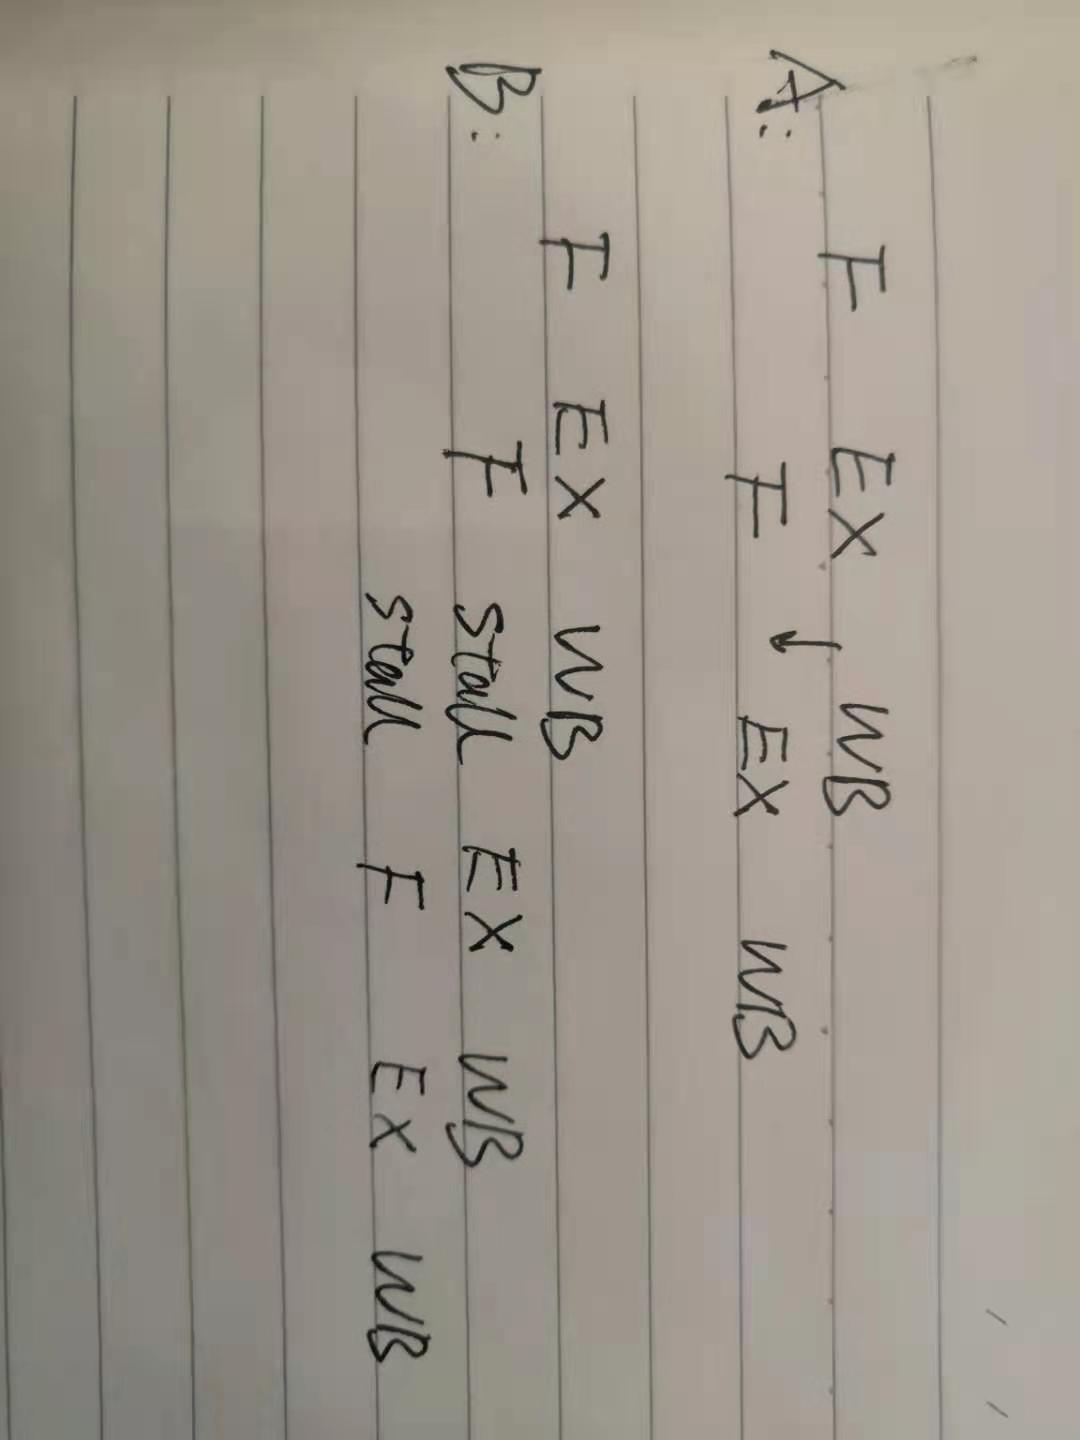 F EX WB
A:
F EX WB
F EX WB
B:
F stall EX WB
stall F EX WB